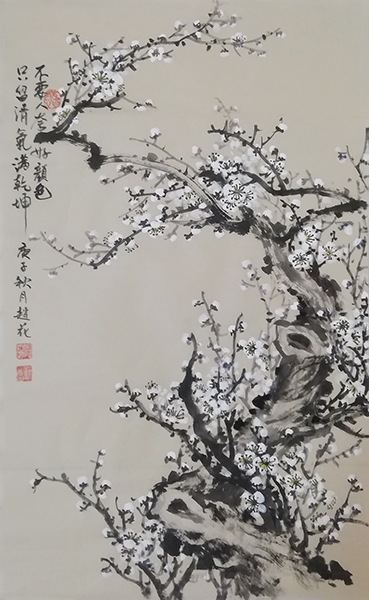 不要人夸好颜色
只留清氣满乾坤
庚子秋月趙花